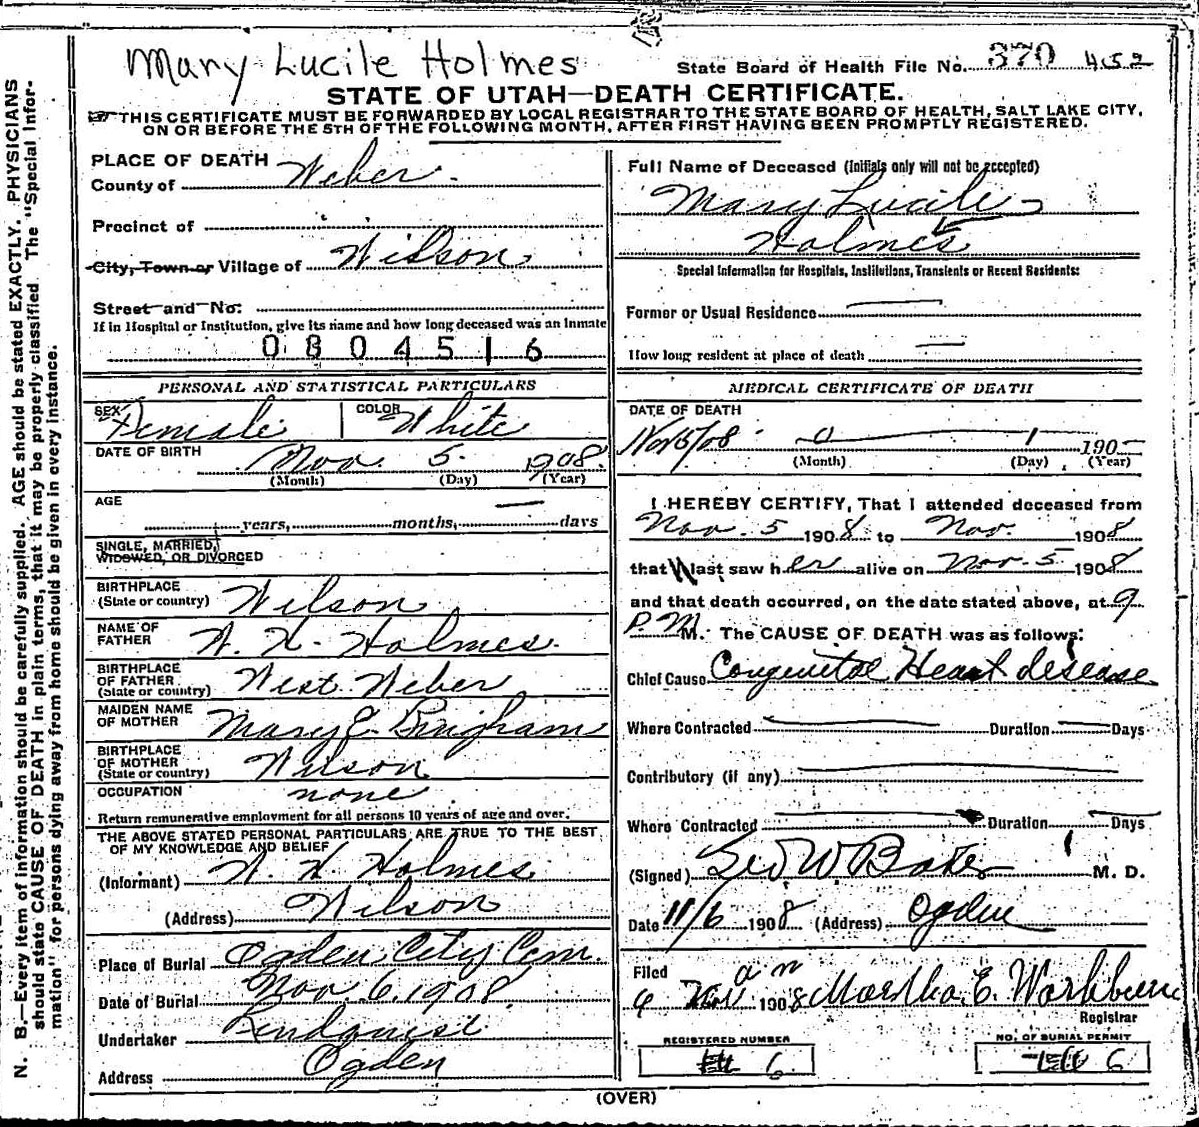 Mary Lucile Holmes
State Board of Health File No. 370 452
STATE OF UTAH—DEATH CERTIFICATE.
THIS CERTIFICATE MUST BE FORWARDED BY LOCAL REGISTRAR TO THE STATE BOARD OF HEALTH, SALT LAKE CITY,
ON OR BEFORE THE 5TH OF THE FOLLOWING MONTH, AFTER FIRST HAVING BEEN PROMPTLY REGISTERED.
N. B.—Every item of information should be carefully supplied. AGE should be stated EXACTLY. PHYSICIANS
should state CAUSE OF DEATH in plain terms, that it may be properly classified. The "Special Infor-
mation" for persons dying away from home should be given in every instance.
PLACE OF DEATH
County of Weber
Precinct of
City, Town or Village of Wilson
Street and No:
If in Hospital or Institution, give its name and how long deceased was an Inmate
0804516
PERSONAL AND STATISTICAL PARTICULARS
SEX Female COLOR White
DATE OF BIRTH Nov. 5. 1908.
(Month) (Day) (Year)
AGE
years, months, days
SINGLE, MARRIED,
WIDOWED, OR DIVORCED
BIRTHPLACE
(State or country) Wilson
NAME OF
FATHER W. H. Holmes.
BIRTHPLACE
OF FATHER
(State or country) West Weber
MAIDEN NAME
OF MOTHER Mary E. Bingham
BIRTHPLACE
OF MOTHER
(State or country) Wilson
OCCUPATION none
Return remunerative employment for all persons 10 years of age and over.
THE ABOVE STATED PERSONAL PARTICULARS ARE TRUE TO THE BEST
OF MY KNOWLEDGE AND BELIEF
(Informant) W. H. Holmes
(Address) Wilson
Place of Burial Ogden City Cem.
Date of Burial Nov. 6. 1908.
Undertaker Lindquist
Address Ogden
Full Name of Deceased (initials only will not be accepted)
Mary Lucile
Holmes
Special Information for Hospitals, Institutions, Transients or Recent Residents:
Former or Usual Residence
How long resident at place of death
MEDICAL CERTIFICATE OF DEATH
DATE OF DEATH
Nov 5/08 190
(Month) (Day) (Year)
I HEREBY CERTIFY, That I attended deceased from
Nov. 5 1908 to Nov. 1908
that I last saw her alive on Nov. 5 1908
and that death occurred, on the date stated above, at 9
P.M. M. The CAUSE OF DEATH was as follows:
Chief Cause Congenital Heart disease
Where Contracted Duration Days
Contributory (if any)
Where Contracted Duration Days
(Signed) Geo W Baker M. D.
Date 11/6 1908 (Address) Ogden
Filed
9 am Nov 1908 Martha E. Washburn
Registrar
REGISTERED NUMBER
6
NO. OF BURIAL PERMIT
6
(OVER)